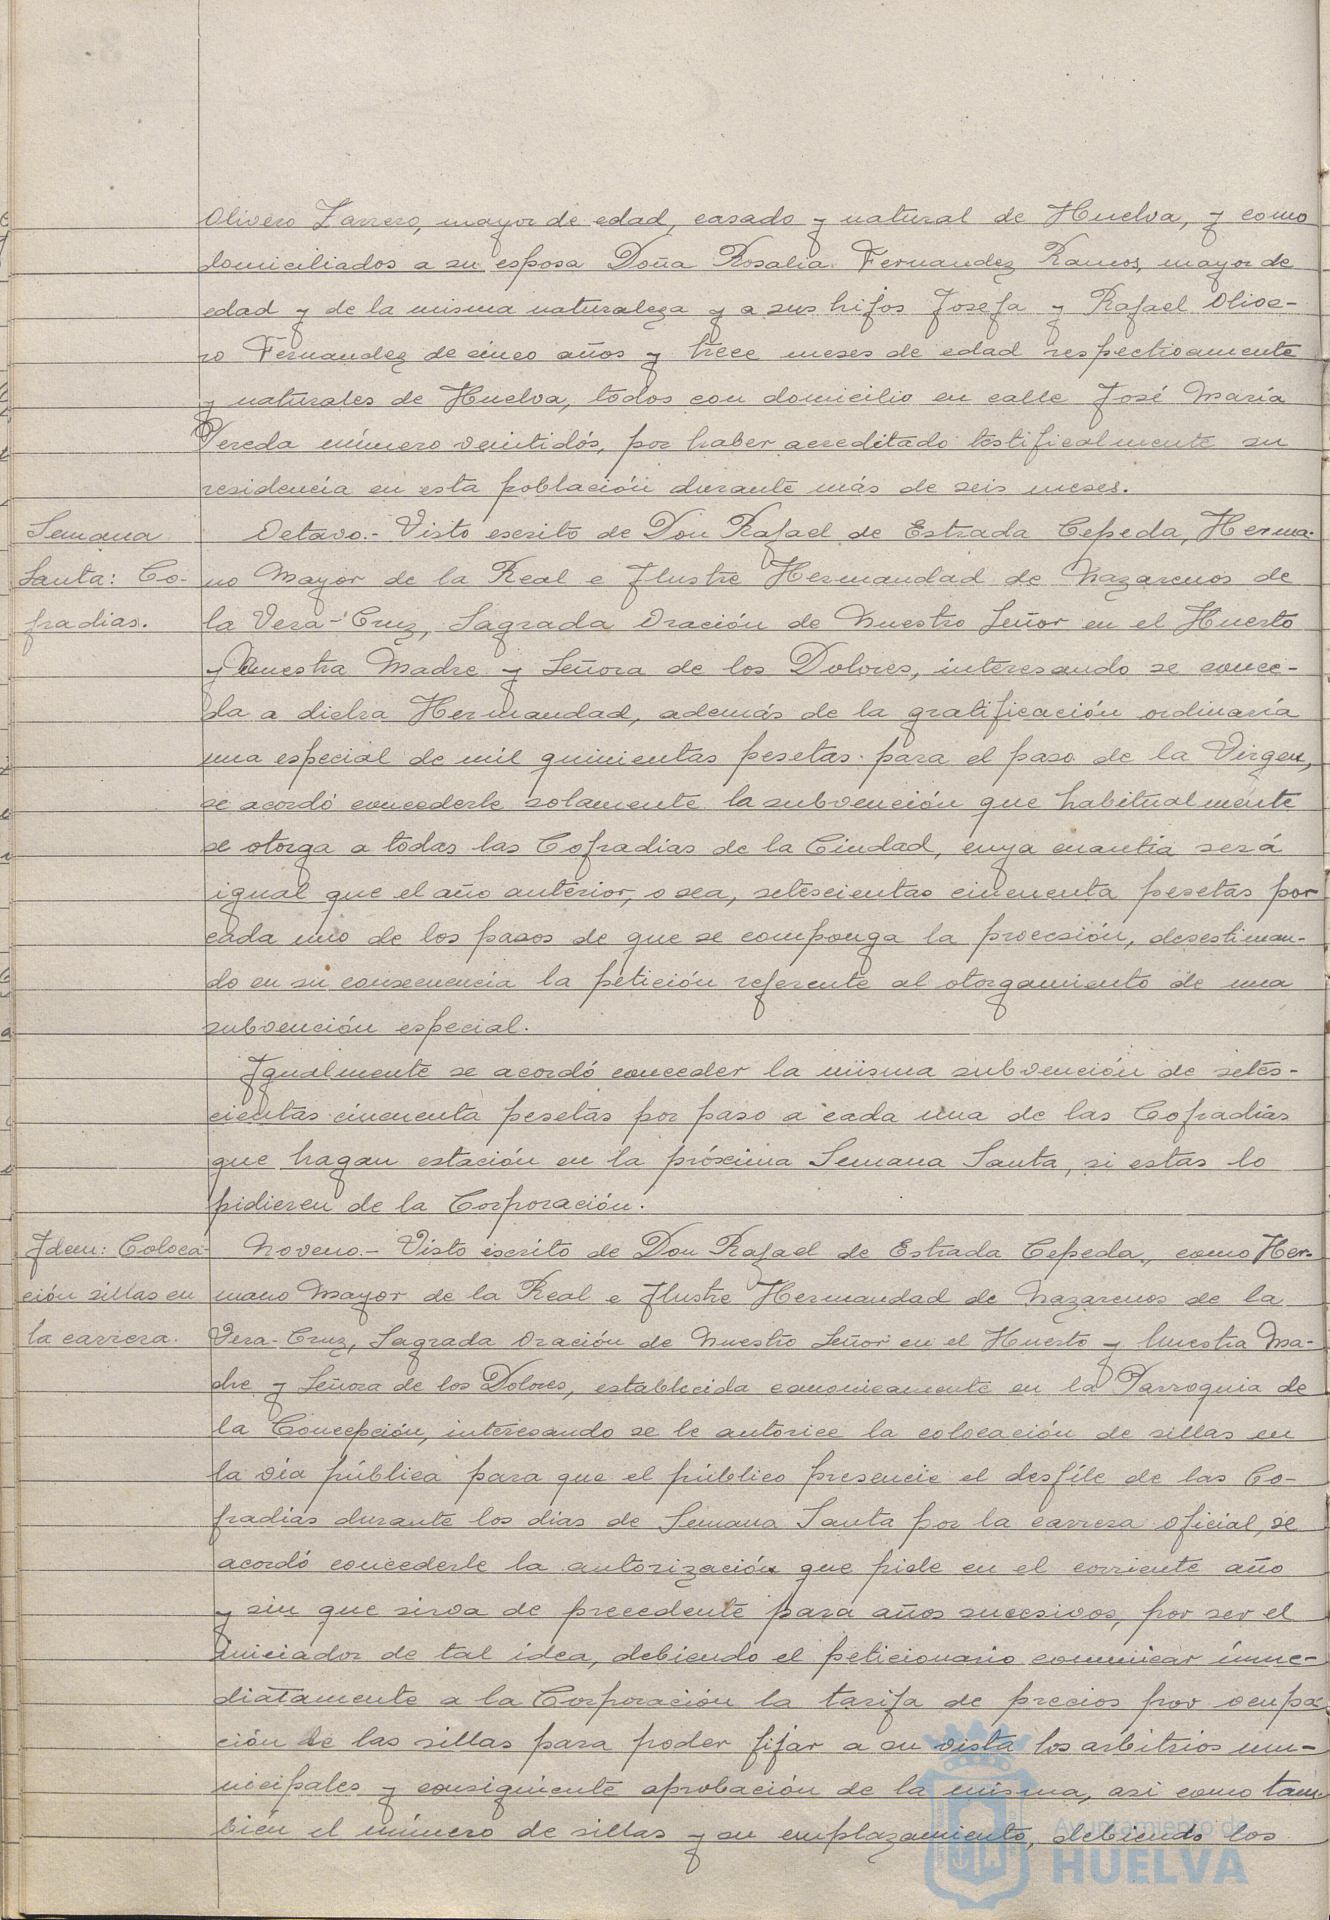 Olivero Zarrero, mayor de edad, casado y natural de Huelva, y como
domiciliados a su esposa Doña Rosalia Fernandez Ramos, mayor de
edad y de la misma naturaleza y a sus hijos Josefa y Rafael Olive-
ro Fernandez de cinco años y trece meses de edad respectivamente
y naturales de Huelva, todos con domicilio en calle José María
Pereda número veintidós, por haber acreditado testificalmente su
residencia en esta población durante más de seis meses.
Semana
Santa: Co-
fradias.
Octavo.- Visto escrito de Don Rafael de Estrada Cepeda, Herma-
no Mayor de la Real e Ilustre Hermandad de Nazarenos de
la Vera-Cruz, Sagrada Oración de Nuestro Señor en el Huerto
y Nuestra Madre y Señora de los Dolores, interesando se conce-
da a dicha Hermandad, además de la gratificación ordinaria
una especial de mil quinientas pesetas para el paso de la Virgen,
se acordó concederle solamente la subvención que habitualmente
se otorga a todas las Cofradias de la Ciudad, cuya cuantía será
igual que el año anterior, o sea, setescientas cincuenta pesetas por
cada uno de los pasos de que se componga la procesión, desestiman-
do en su consecuencia la petición referente al otorgamiento de una
subvención especial.
Igualmente se acordó conceder la misma subvención de setes-
cientas cincuenta pesetas por paso a cada una de las Cofradías
que hagan estación en la próxima Semana Santa, si estas lo
pidieren de la Corporación.
Idem: Coloca-
ción sillas en
la carrera.
Noveno.- Visto escrito de Don Rafael de Estrada Cepeda, como Her-
mano Mayor de la Real e Ilustre Hermandad de Nazarenos de la
Vera-Cruz, Sagrada Oración de Nuestro Señor en el Huerto y Nuestra Ma-
dre y Señora de los Dolores, establecida canonicamente en la Parroquia de
la Concepción, interesando se le autorice la colocación de sillas en
la vía pública para que el público presencie el desfile de las Co-
fradias durante los dias de Semana Santa por la carrera oficial, se
acordó concederle la autorización que pide en el corriente año
y sin que sirva de precedente para años sucesivos, por ser el
iniciador de tal idea, debiendo el peticionario comunicar inme-
diatamente a la Corporación la tarifa de precios por ocupa
ción de las sillas para poder fijar a su vista los arbitrios mu-
nicipales y consiguiente aprobación de la misma, asi como tam-
bién el número de sillas y su emplazamiento, debiendo los
Ayuntamiento de
HUELVA